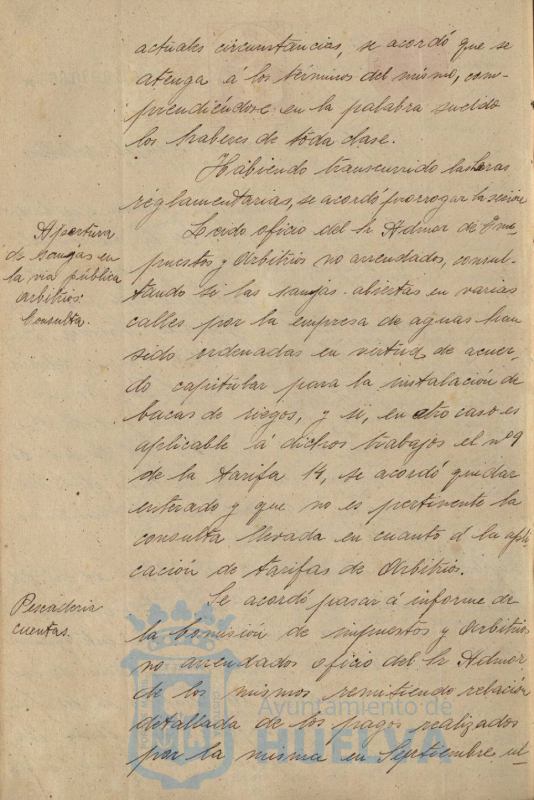 actuales circunstancias, se acordó que se
atenga á los términos del mismo, com-
prendiéndose en la palabra sueldo
los haberes de toda clase.
Habiendo transcurrido las horas
reglamentarias, se acordó prorrogar la sesión
Apertura
de zanjas en
la via pública
Arbitrios:
Consulta.
Leido oficio del Sr Admor de Im-
puestos y Arbitrios no arrendados, consul-
tando si las zanjas abiertas en varias
calles por la empresa de aguas han
sido ordenadas en virtud de acuer-
do capitular para la instalación de
bocas de riegos, y si, en otro caso es
aplicable á dichos trabajos el nº 9
de la tarifa 14, se acordó quedar
enterado y que no es pertinente la
consulta llevada en cuanto á la apli
cación de tarifas de Arbitrios.
Pescaderia
cuentas.
Se acordó pasar á informe de
la Comisión de impuestos y Arbitrios
no arrendados oficio del Sr Admor
de los mismos remitiendo relación
detallada de los pagos realizados
por la misma en Septiembre ul-
Ayuntamiento de
HUELVA